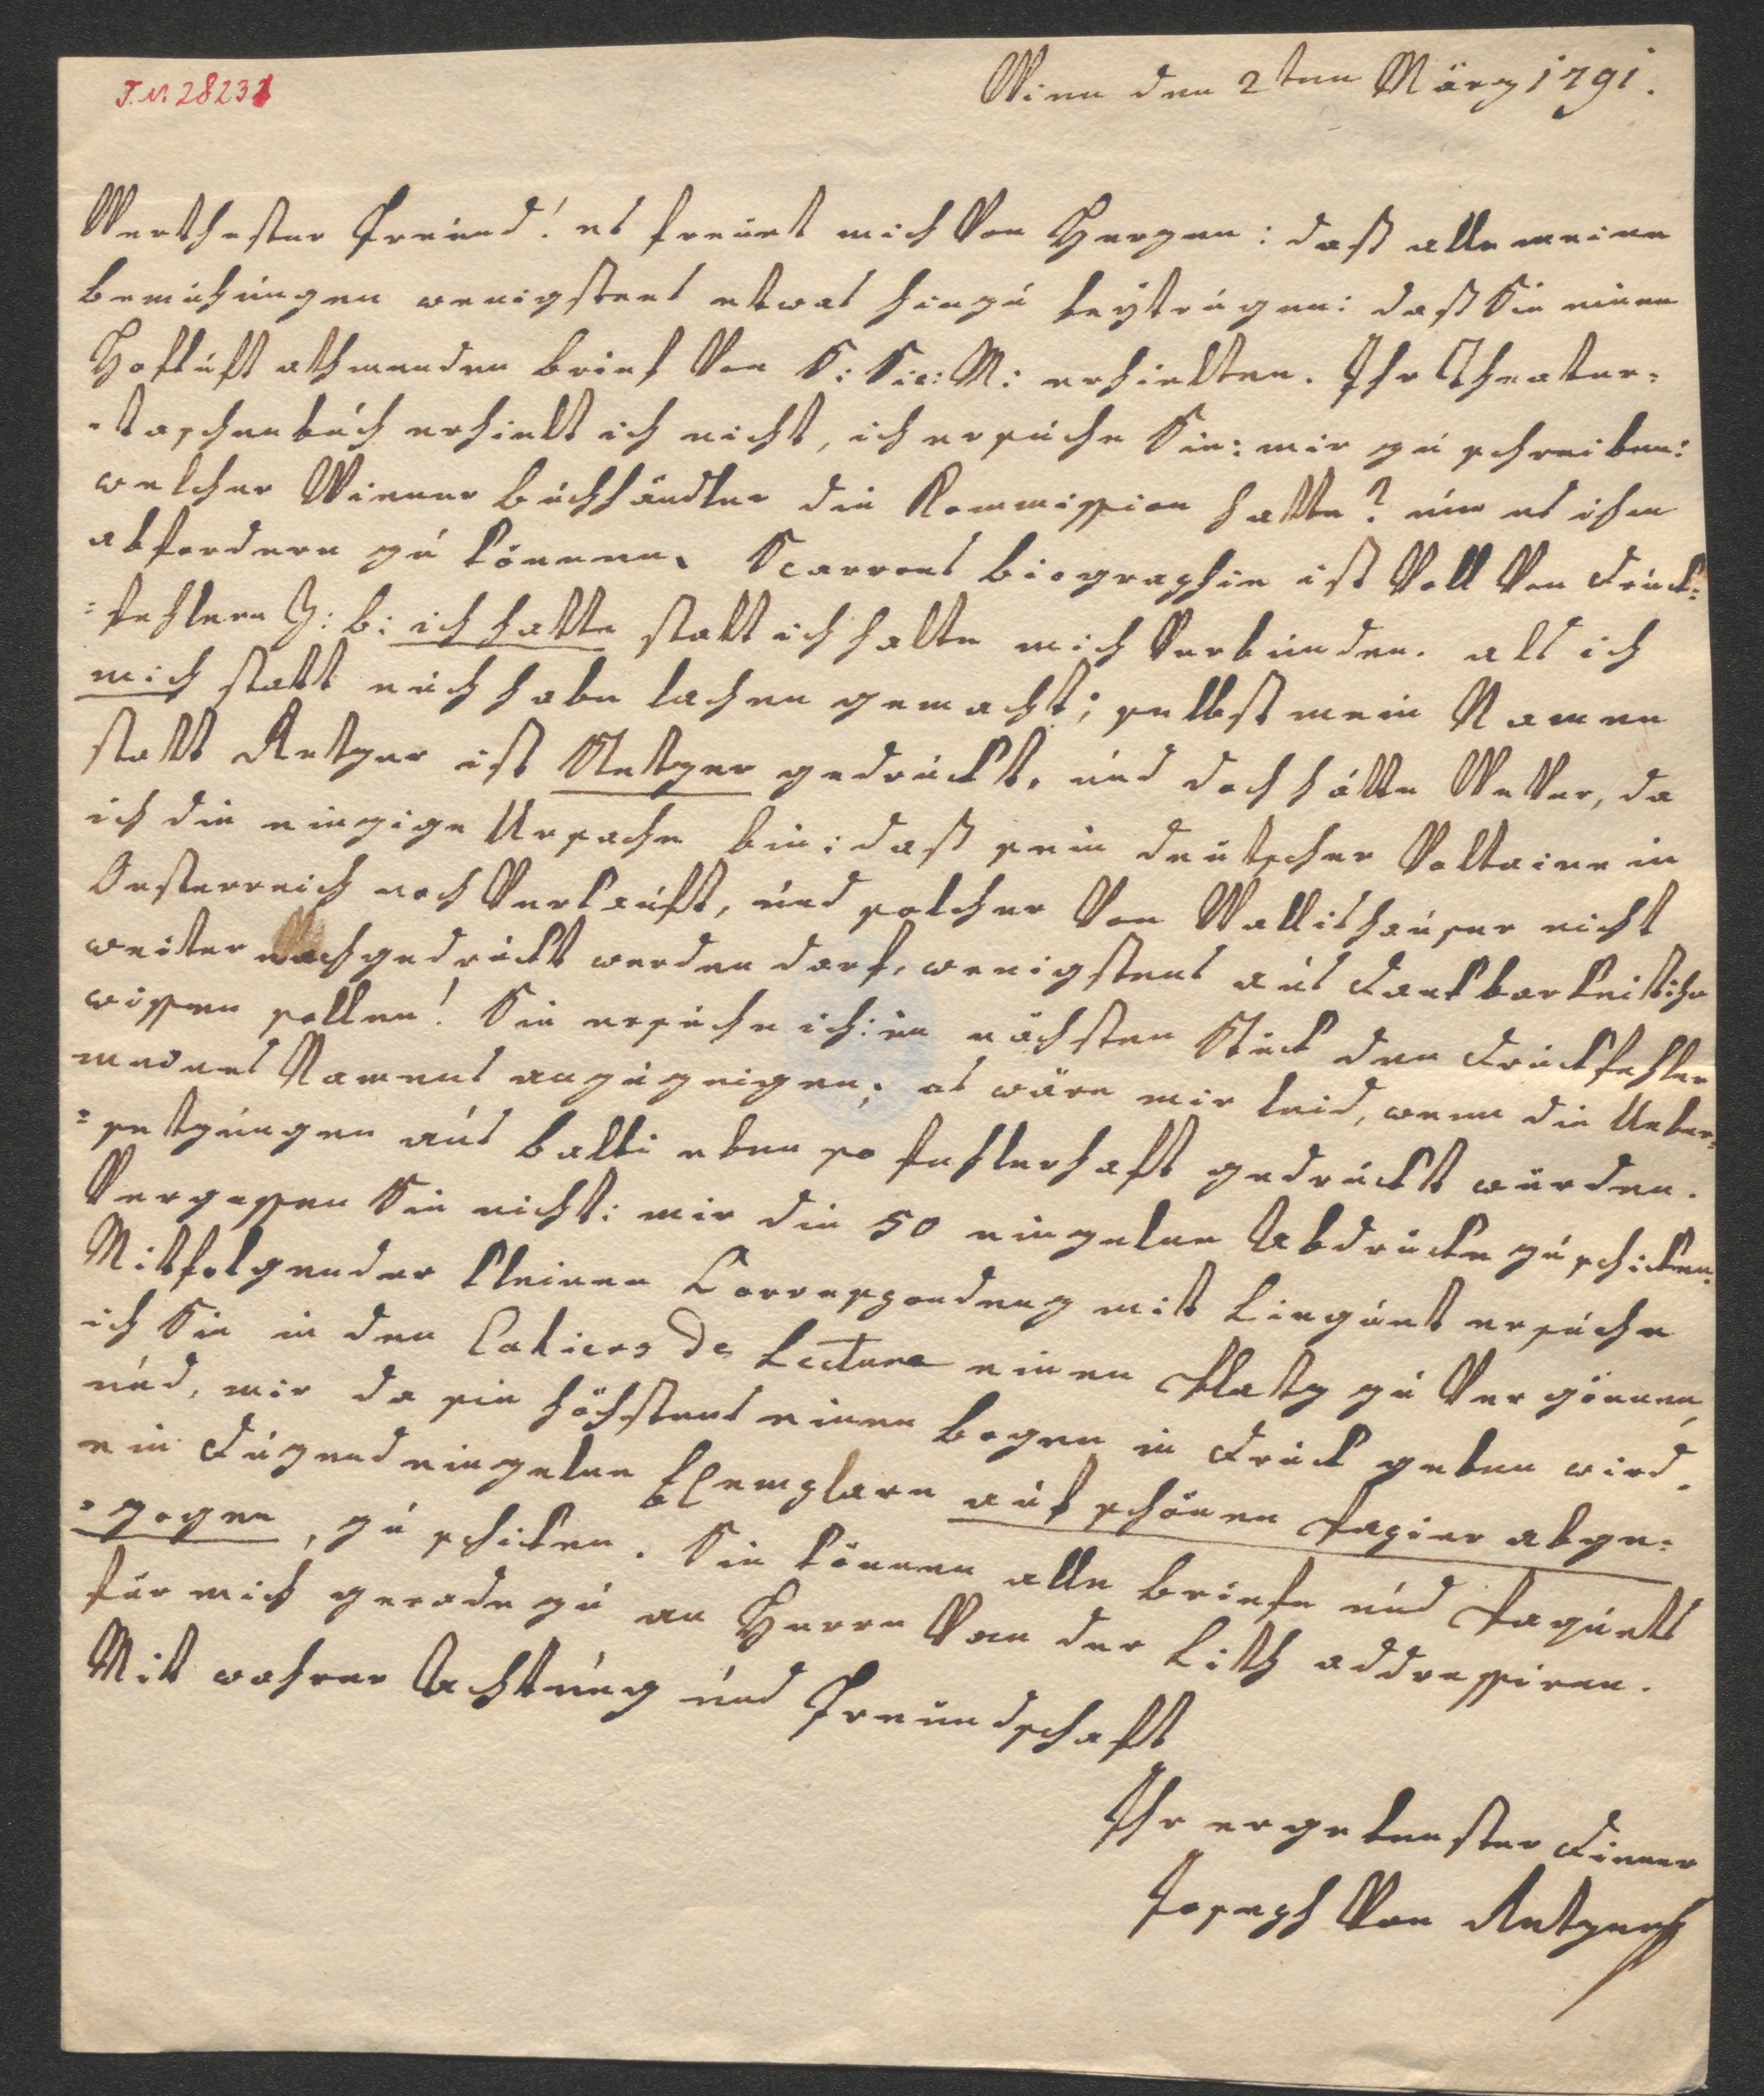 I.N. 28231
Wien den 2ten März 1791.
Werthester Freund! es freuet mich Von Herzen: daß alle meine
bemühungen wenigstens etwas hinzu beytrugen: daß Sie einen
Hofluft athmenden brief Von S: Sic: M: erhielten. Ihr Theater-
-taschenbuch erhielt ich nicht, ich ersuche Sie: mir zu schreiben:
welcher Wiener buchhändler die Kommission hatte? um es ihm
abfordern zu können. Scarrons biographie ist Voll Von Druck-
=fehlern Z: b: ich hatte statt ich halte mich Verbunden. als ich
mich statt euch habe lachen gemacht; selbst mein Namen
statt Retzer ist Netzer gedruckt, und doch hätte Wever, da
ich die einzige Ursache bin: daß sein deutscher Voltaire in
Oesterreich noch Verkauft, und solcher Von Wallishauser nicht
weiter nachgedruckt werden darf, wenigstens aus Dankbarkeit ihn
wissen sollen! Sie ersuche ich: im nächsten Stück den Druckfehler
meines Namens anzuzeigen; es wäre mir leid, wenn die Ueber-
=setzungen aus balbi eben so fehlerhaft gedruckt würden.
Vergessen Sie nicht: mir die 50 einzelne Abdrücke zu schicken.
Mitfolgender kleinen Correspondenz mit Linguet ersuche
ich Sie in den Cahiers de Lecture einen Platz zu Vergönnen,
und, mir da sie höchstens einen bogen in Druck geben wird.
ein Dutzend einzelne Exemplare auf schönen Papier abge-
=zogen, zu schicken. Sie können alle briefe und Paquets
für mich gerade zu an Herrn Von der Lith addressiren.
Mit wahrer Achtung und Freundschaft
Ihr ergebenster Diener
Joseph Von Retzer